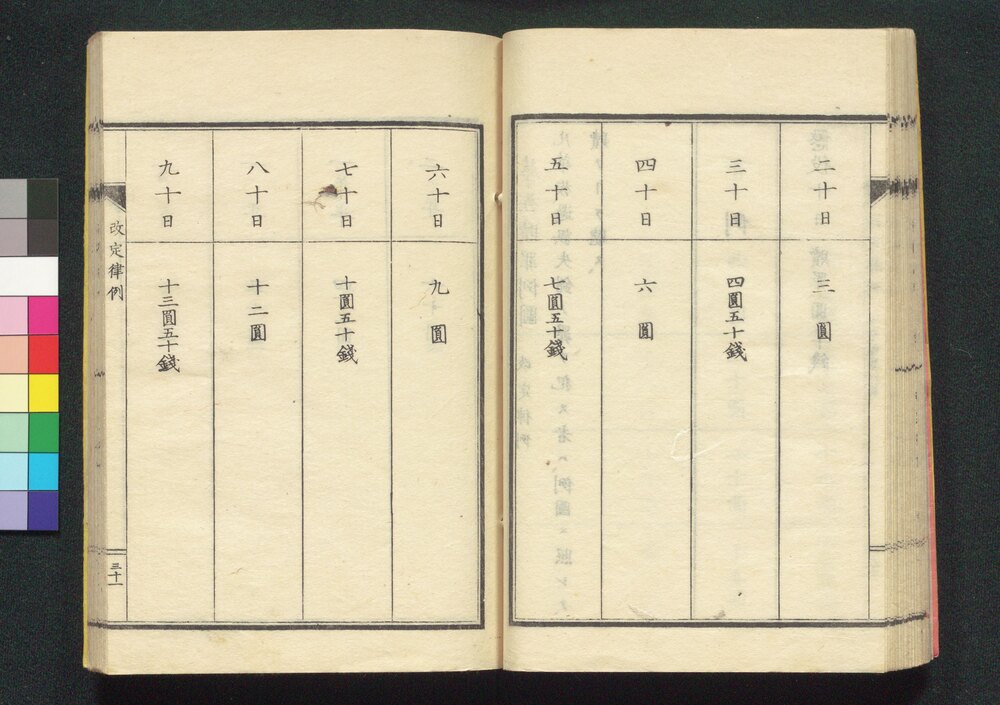 二十日 三圓
三十日 四圓五十錢
四十日 六圓
五十日 七圓五十錢
六十日 九圓
七十日 十圓五十錢
八十日 十二圓
九十日 十三圓五十錢
改定律例
三十一